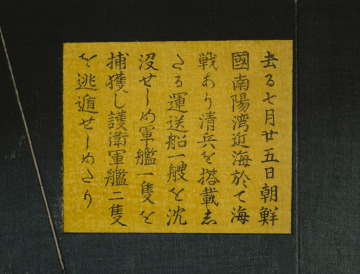 去る七月廿五日朝鮮
國南陽湾近海於て海
戦あり清兵を搭載し
たる運送船一艘を沈
没せしめ軍艦一隻を
捕獲し護衛軍艦二隻
を逃遁せしめたり